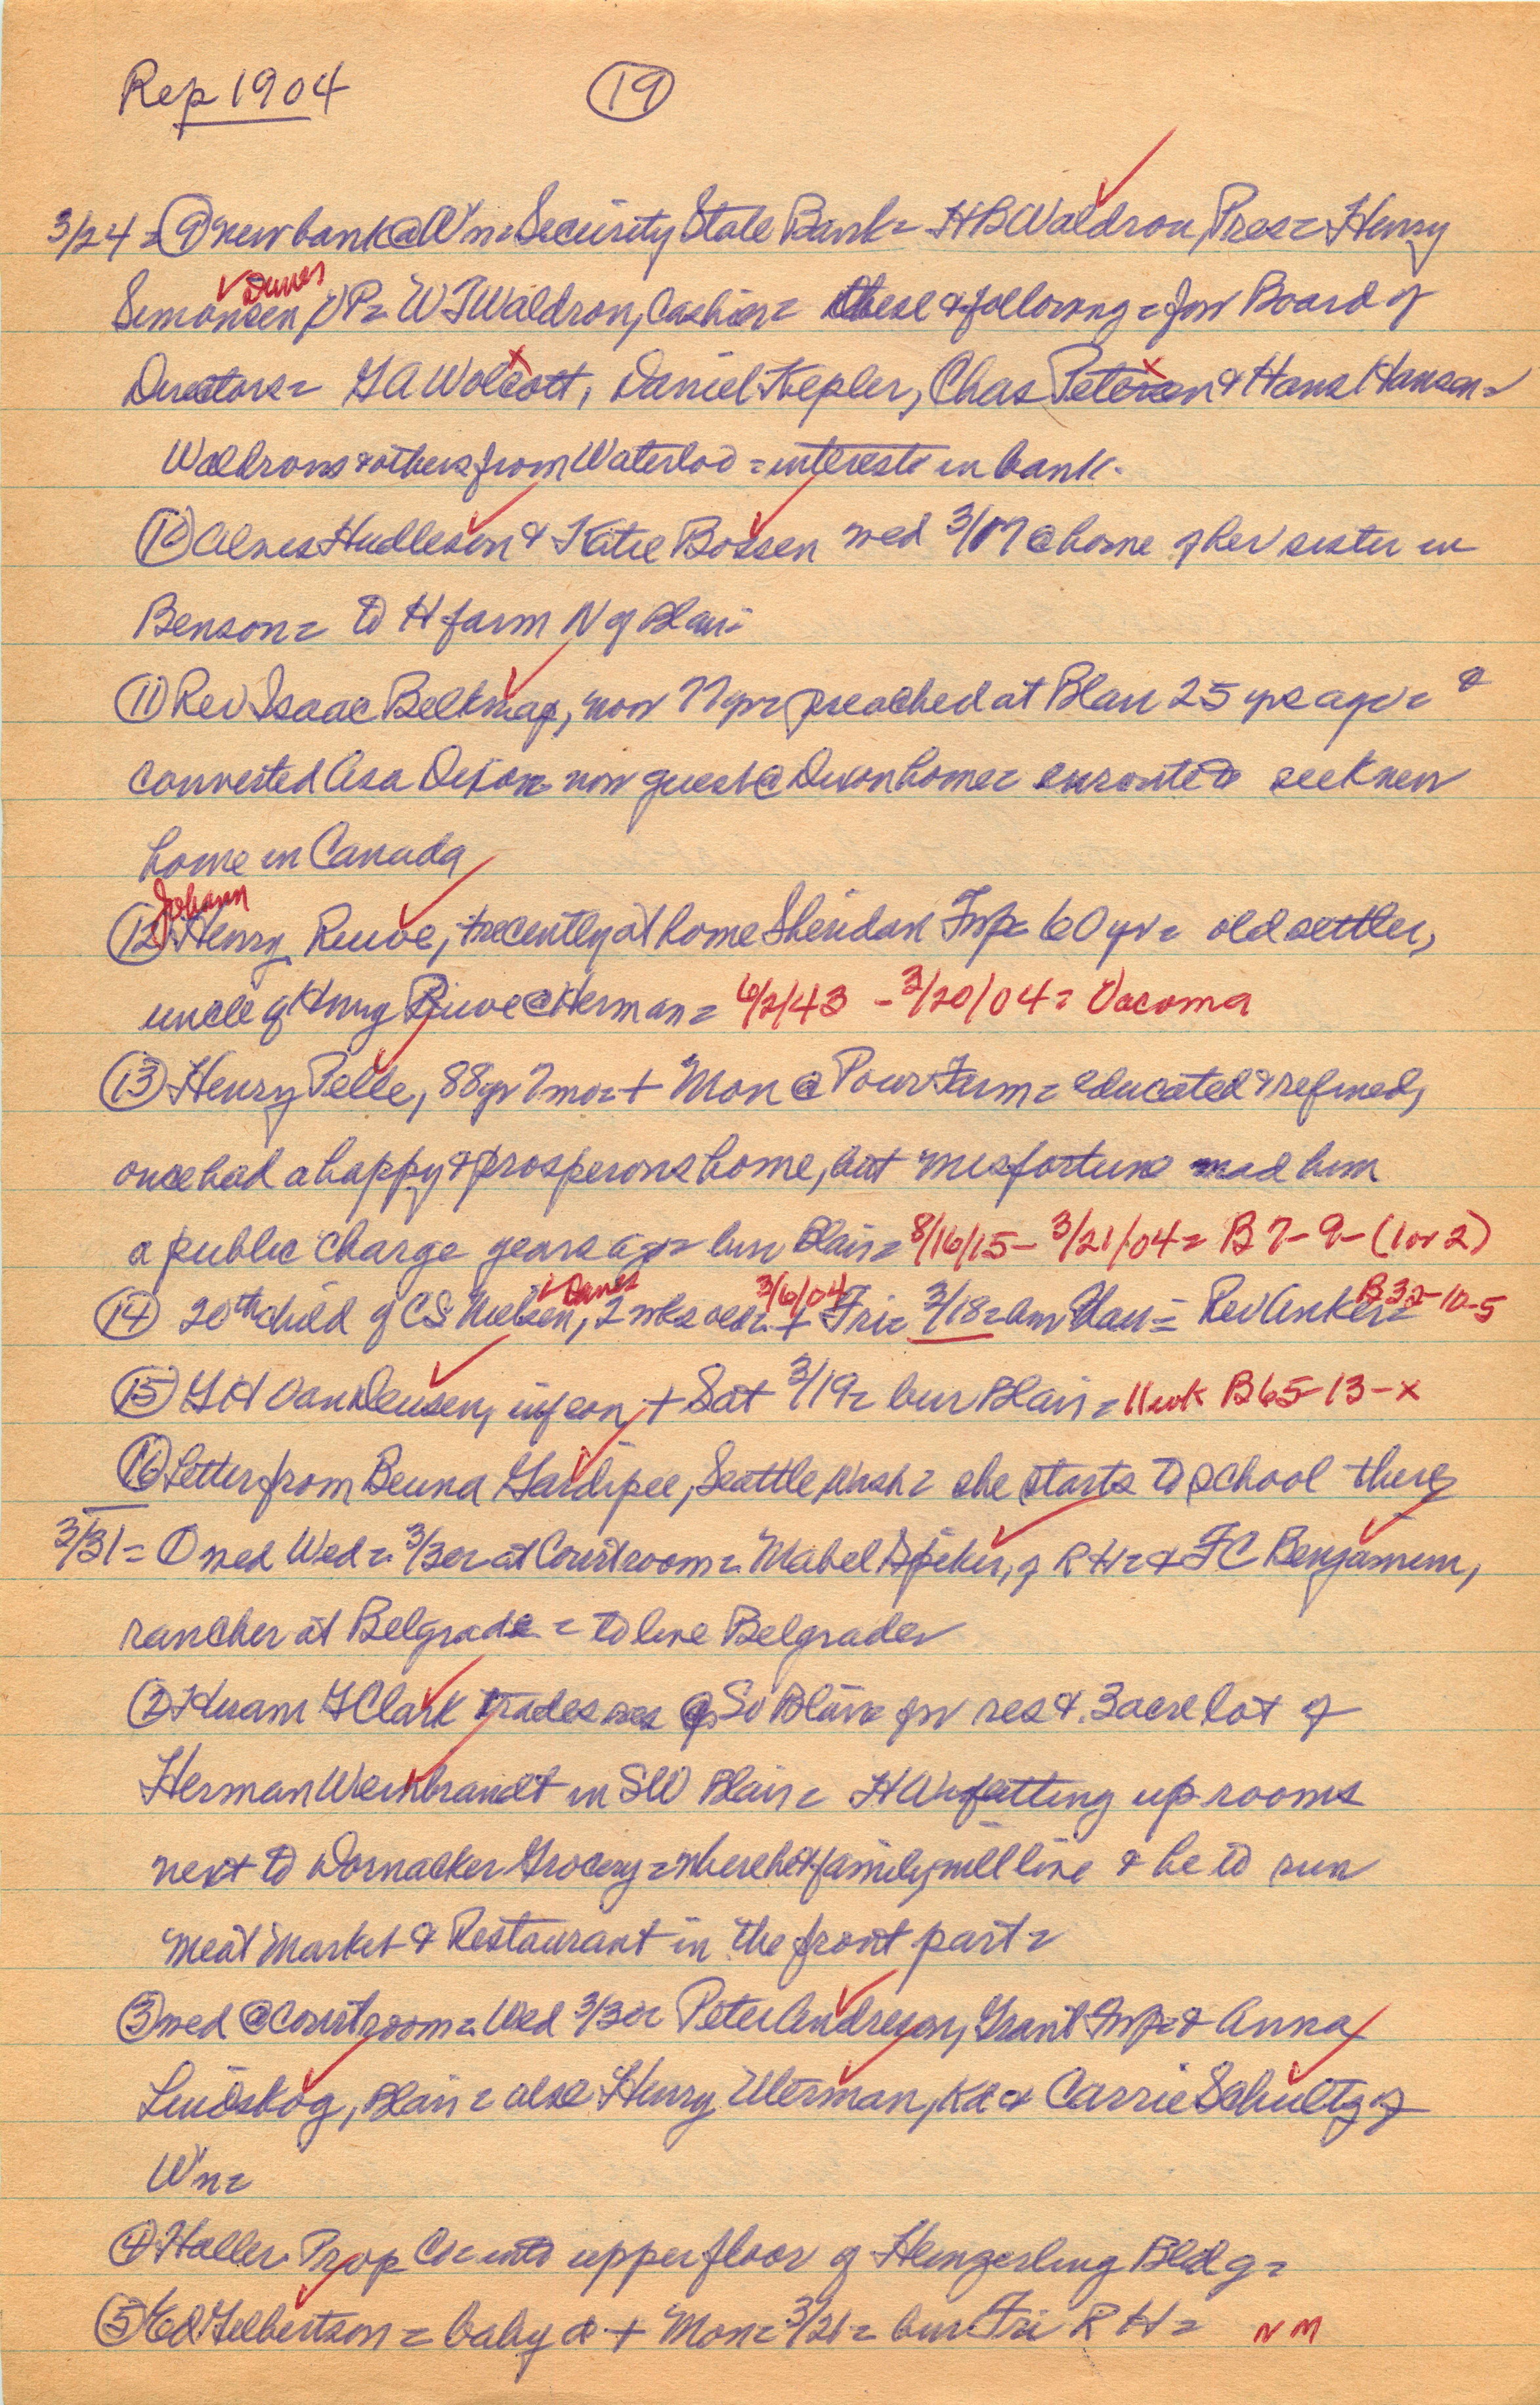 Rep 1904 (19)
3/24 = (9) new bank @ W'n = Security State Bank = H B Waldron, Pres = Henry
✓ Danes
Simonsen, VP = W J Waldron, Cashier = these & following = for Board of
Directors = G A Wolcott, Daniel Kepler, Chas Petersen & Hans Hansen =
Waldrons & others from Waterloo = interests in bank.
(10) Huddleson & Katie Bossen wed 3/17 @ home of her sister in
Benson = to H farm N of Blair
(11) Rev Isaac Belknap, now 77 yr = preached at Blair 25 yrs ago = &
converted Asa Dixon now guest @ Dixon home = enroute to seek new
home in Canada
Johann
(12) Henry Ruwe, + recently at home Sheridan Twp = 60 yr = old settler,
uncle of Henry Ruwe @ Herman = 6/2/43 - 3/20/04 = Vacoma
(13) Henry Pelle, 88 yr 7 mo = + Mon @ Poor Farm = educated & refined,
once had a happy & prosperous home, but misfortune mad him
a public charge years ago = bur Blair = 8/16/15 - 3/21/04 = B 7-9-(1 or 2)
✓ Danes 3/6/04 B32-10-5
(14) 20th child of C S Nielsen, 2 wks old = + Fri = 3/18 = bur Blair = Rev Anker =
(15) G H VanDeusen, inf son, + Sat 3/19 = bur Blair = 11 wk B65-13-x
(16) Letter from Beuna Gardipee, Seattle, Wash = she starts to school there
3/31 = (1) wed Wed = 3/30 = at Courtroom = Mabel Spiker, of R H = & F C Benjamin,
rancher at Belgrade = to live Belgrade
(2) Hiram G Clark trades res @ So Blair for res & 3 acre lot of
Herman Weinbrandt in SW Blair = H W fitting up rooms
next to Dornacker Grocery = where he & family will live & he to run
meat market & Restaurant in the front part =
(3) wed @ Courtroom = Wed 3/30 = Peter Andreson, Grant Twp = & Anna
Lindskog, Blair = also Henry Uterman, Kd & Carrie Schultz of
W'n =
(4) Haller Prop Co = into upper floor of Hengerling Bldg =
(5) Ed Gilbertson = baby d + Mon = 3/21 = bur Fri R H = NM